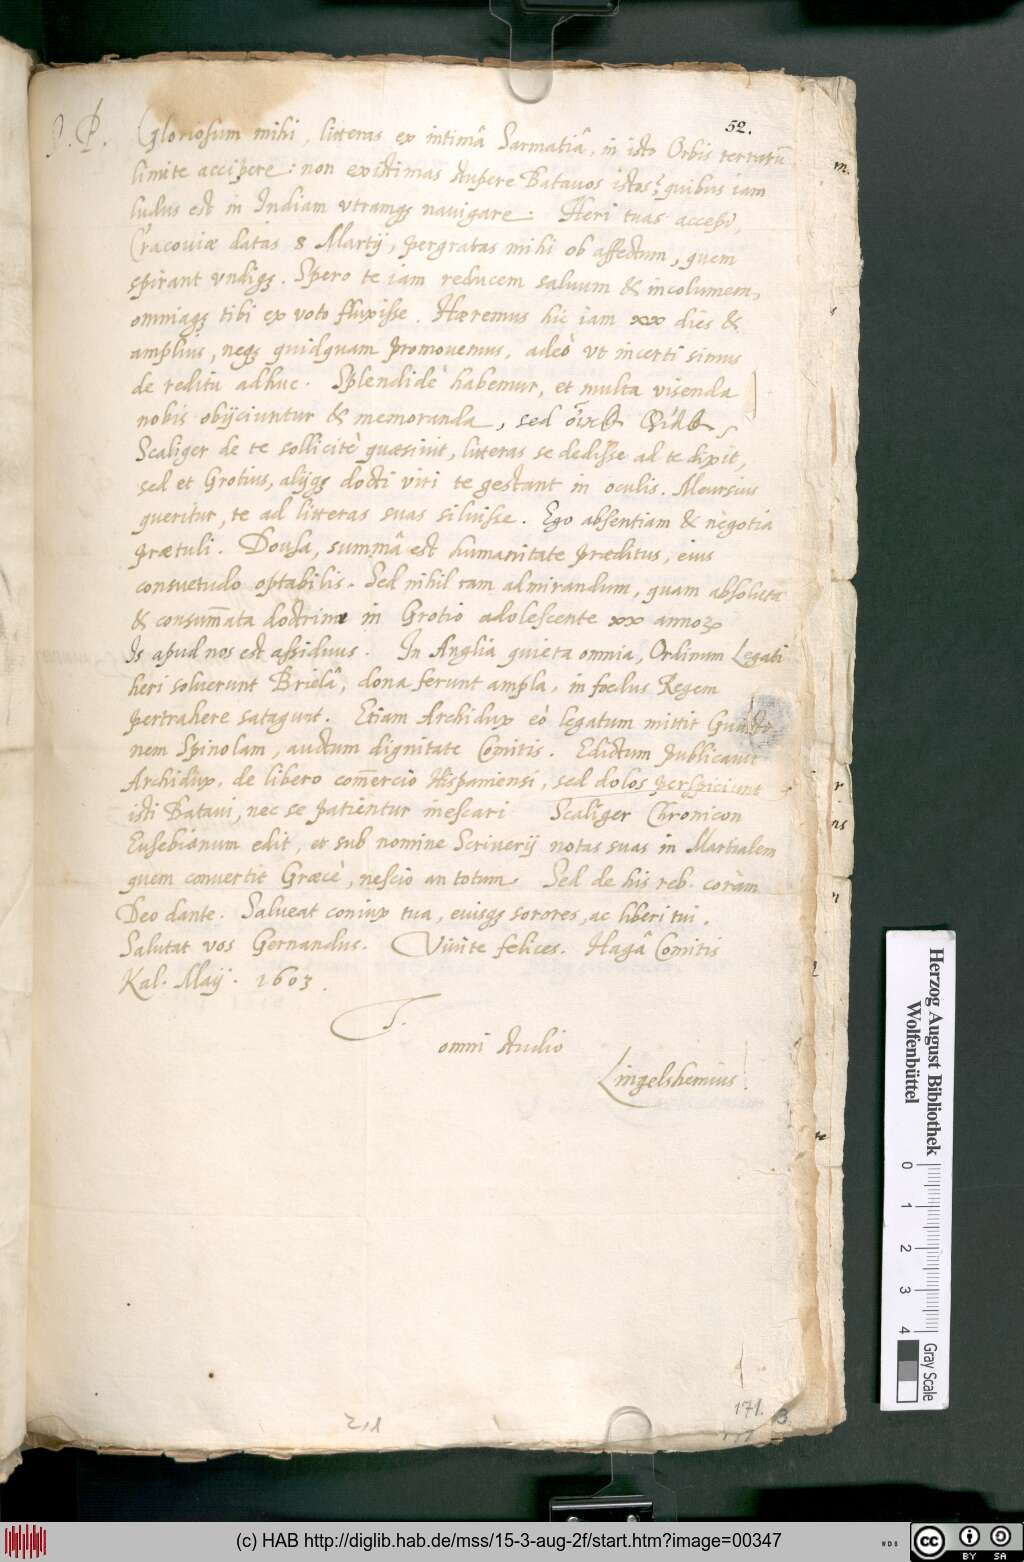 52.
S. P. Gloriosum mihi, litteras ex intimâ Sarmatiâ, in isto Orbis terrarũ
limite accipere: non existimas stupere Batavos istos? quibus iam
ludus est in Indiam vtramqȝ nauigare. Heri tuas accepi,
Cracouiæ datas 8 Martij, pergratas mihi ob affectum, quem
spirant vndiqȝ. Spero te iam reducem saluum & incolumem,
omniaqȝ tibi ex voto fluxisse. Hæremus hic iam xx dies &
amplius, neqȝ quidquam promouemus, adeò vt incerti simus
de reditu adhuc. Splendidè habemur, et multa visenda
nobis obijciuntur & memoranda, sed
Scaliger de te sollicitè quæsiuit, litteras se dedisse ad te dixit,
sed et Grotius, alijqȝ docti viri te gestant in oculis. Meursius
queritur, te ad litteras suas siluisse. Ego absentiam & negotia
prætuli. Dousa, summâ est humanitate præditus, eius
consuetudo optabilis. Sed nihil tam admirandum, quam absoluta
& consum̃ata doctrina in Grotio adolescente xx annoꝝ
Is apud nos est assiduus. In Angliâ quieta omnia, Ordinum Legati
heri soluerunt Brielâ, dona ferunt ampla, in fœdus Regem
pertrahere satagunt. Etiam Archidux eò legatum mittit
nem Spinolam, auctum dignitate Comitis. Edictum publicauit
Archidux, de libero com̃ercio Hispaniensi, sed dolos perspiciunt
isti Bataui, nec se patientur inescari Scaliger Chronicon
Eusebianum edit, et sub nomine Scriuerij notas suas in Martialem
quem conuertit Græcè, nescio an totum. Sed de his reb. coràm
Deo dante. Salueat coniux tua, eiusqȝ sorores, ac liberi tui.
Salutat vos Gernandus. Viuite felices. Hagâ Comitis
Kal. Maij. 1603.
T.
omni studio
Lingelshemius.
171.
Herzog August Bibliothek
Wolfenbüttel
0 1 2 3 4
Gray Scale
(c) HAB http://diglib.hab.de/mss/15-3-aug-2f/start.htm?image=00347
cc BY SA